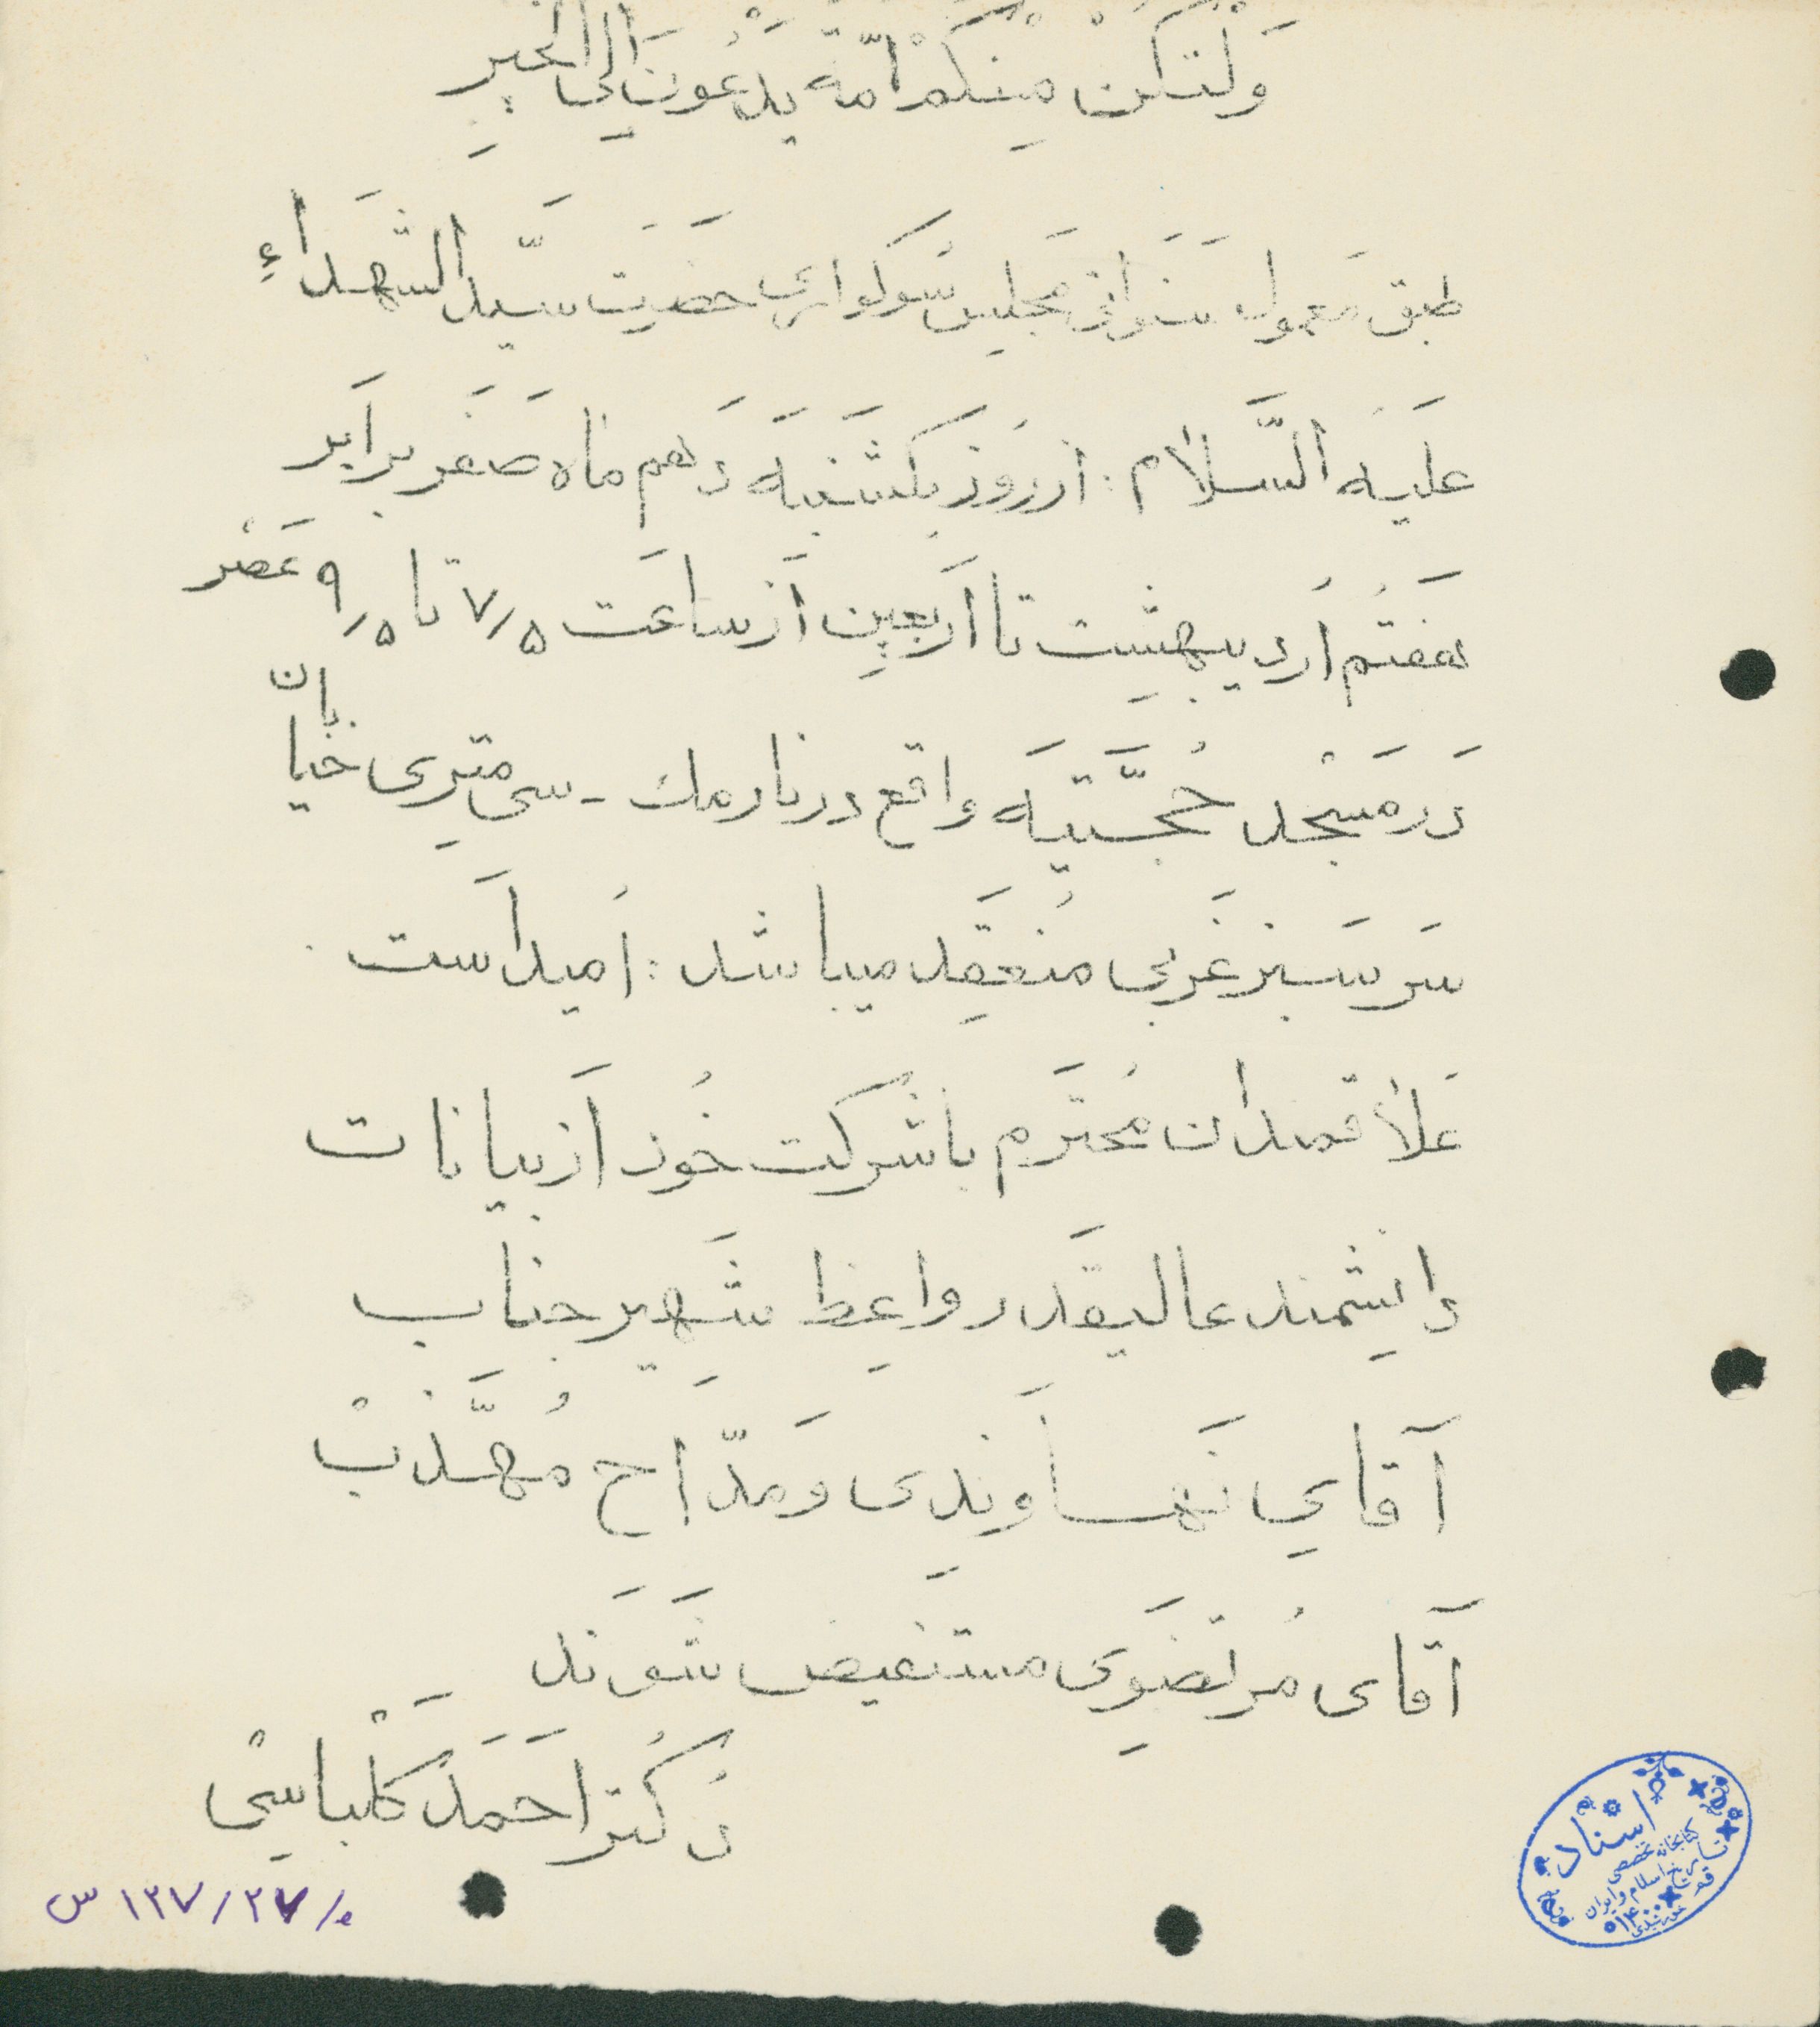 وَلْتَكُنْ مِنْكُمْ اُمَّةٌ يَدْعُونَ اِلَى الْخَيْرِ
طبق مَعمول سَنَواتی مَجلِس سوگواری حَضرَت سَیِّد الشُهَداءِ
عَلَیهِ السَّلام : از روز یکشَنبَه دَهم ماه صَفَر برابَر
هَفتُم اُردیبهِشت تا اَربَعین اَز ساعَت ۷/۵ تا ۹/۵ عَصْر
دَر مَسْجْد حُجَّتیَه واقع در نارمک - سی مِتری خیابان
سَرسَبز غَربی مُنعَقِد میباشد : اُمید اَست
عَلاقمندان مُحتَرَم با شرکت خُود اَز بیانات
دانِشمند عالیقَدر واعِظ شَهیر جناب
آقایِ نَهاوَندِی وَ مَدّاح مُهَذَّبْ
آقای مُرتَضَوِی مستفیض شَوَند
دُکتُر اَحمَد کَلْباسیْ
۱۲۷/۲۷/ه س
اسناد
کتابخانه تخصصی
تاریخ اسلام و ایران
قم